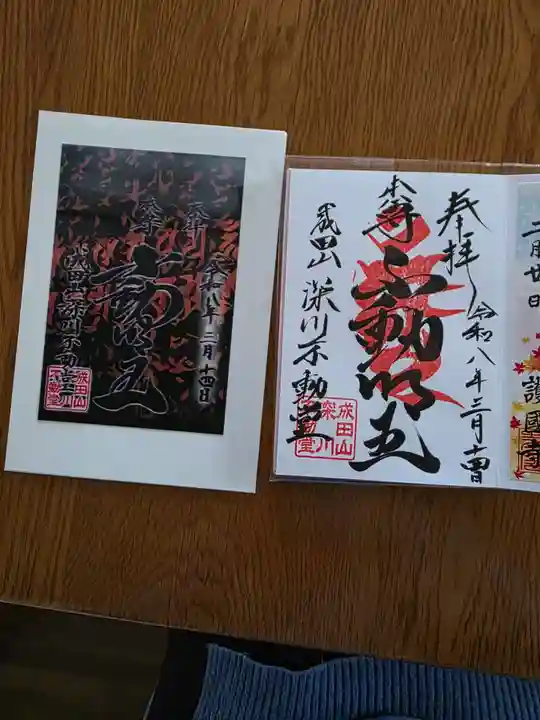 奉拝
本尊
不動明王
成田山 深川不動堂
令和八年三月十四日
成田山
深川
不動堂
奉拝
令和八年三月十四日
本尊
不動明王
成田山 深川不動堂
成田山
深川
不動堂
二月廿日
護國寺